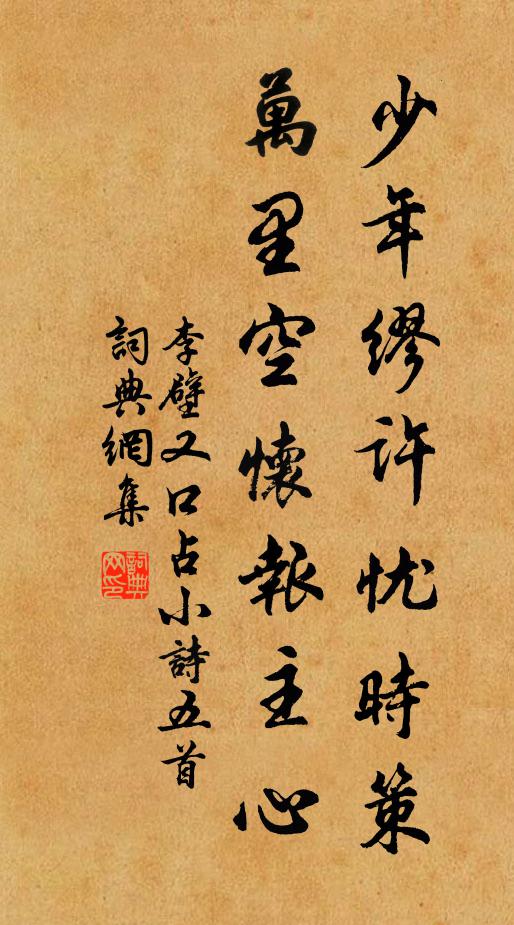 少年缪許忧時策
萬里空懷報主心
李壁又口占小詩五首
詞典網集
詞典网印